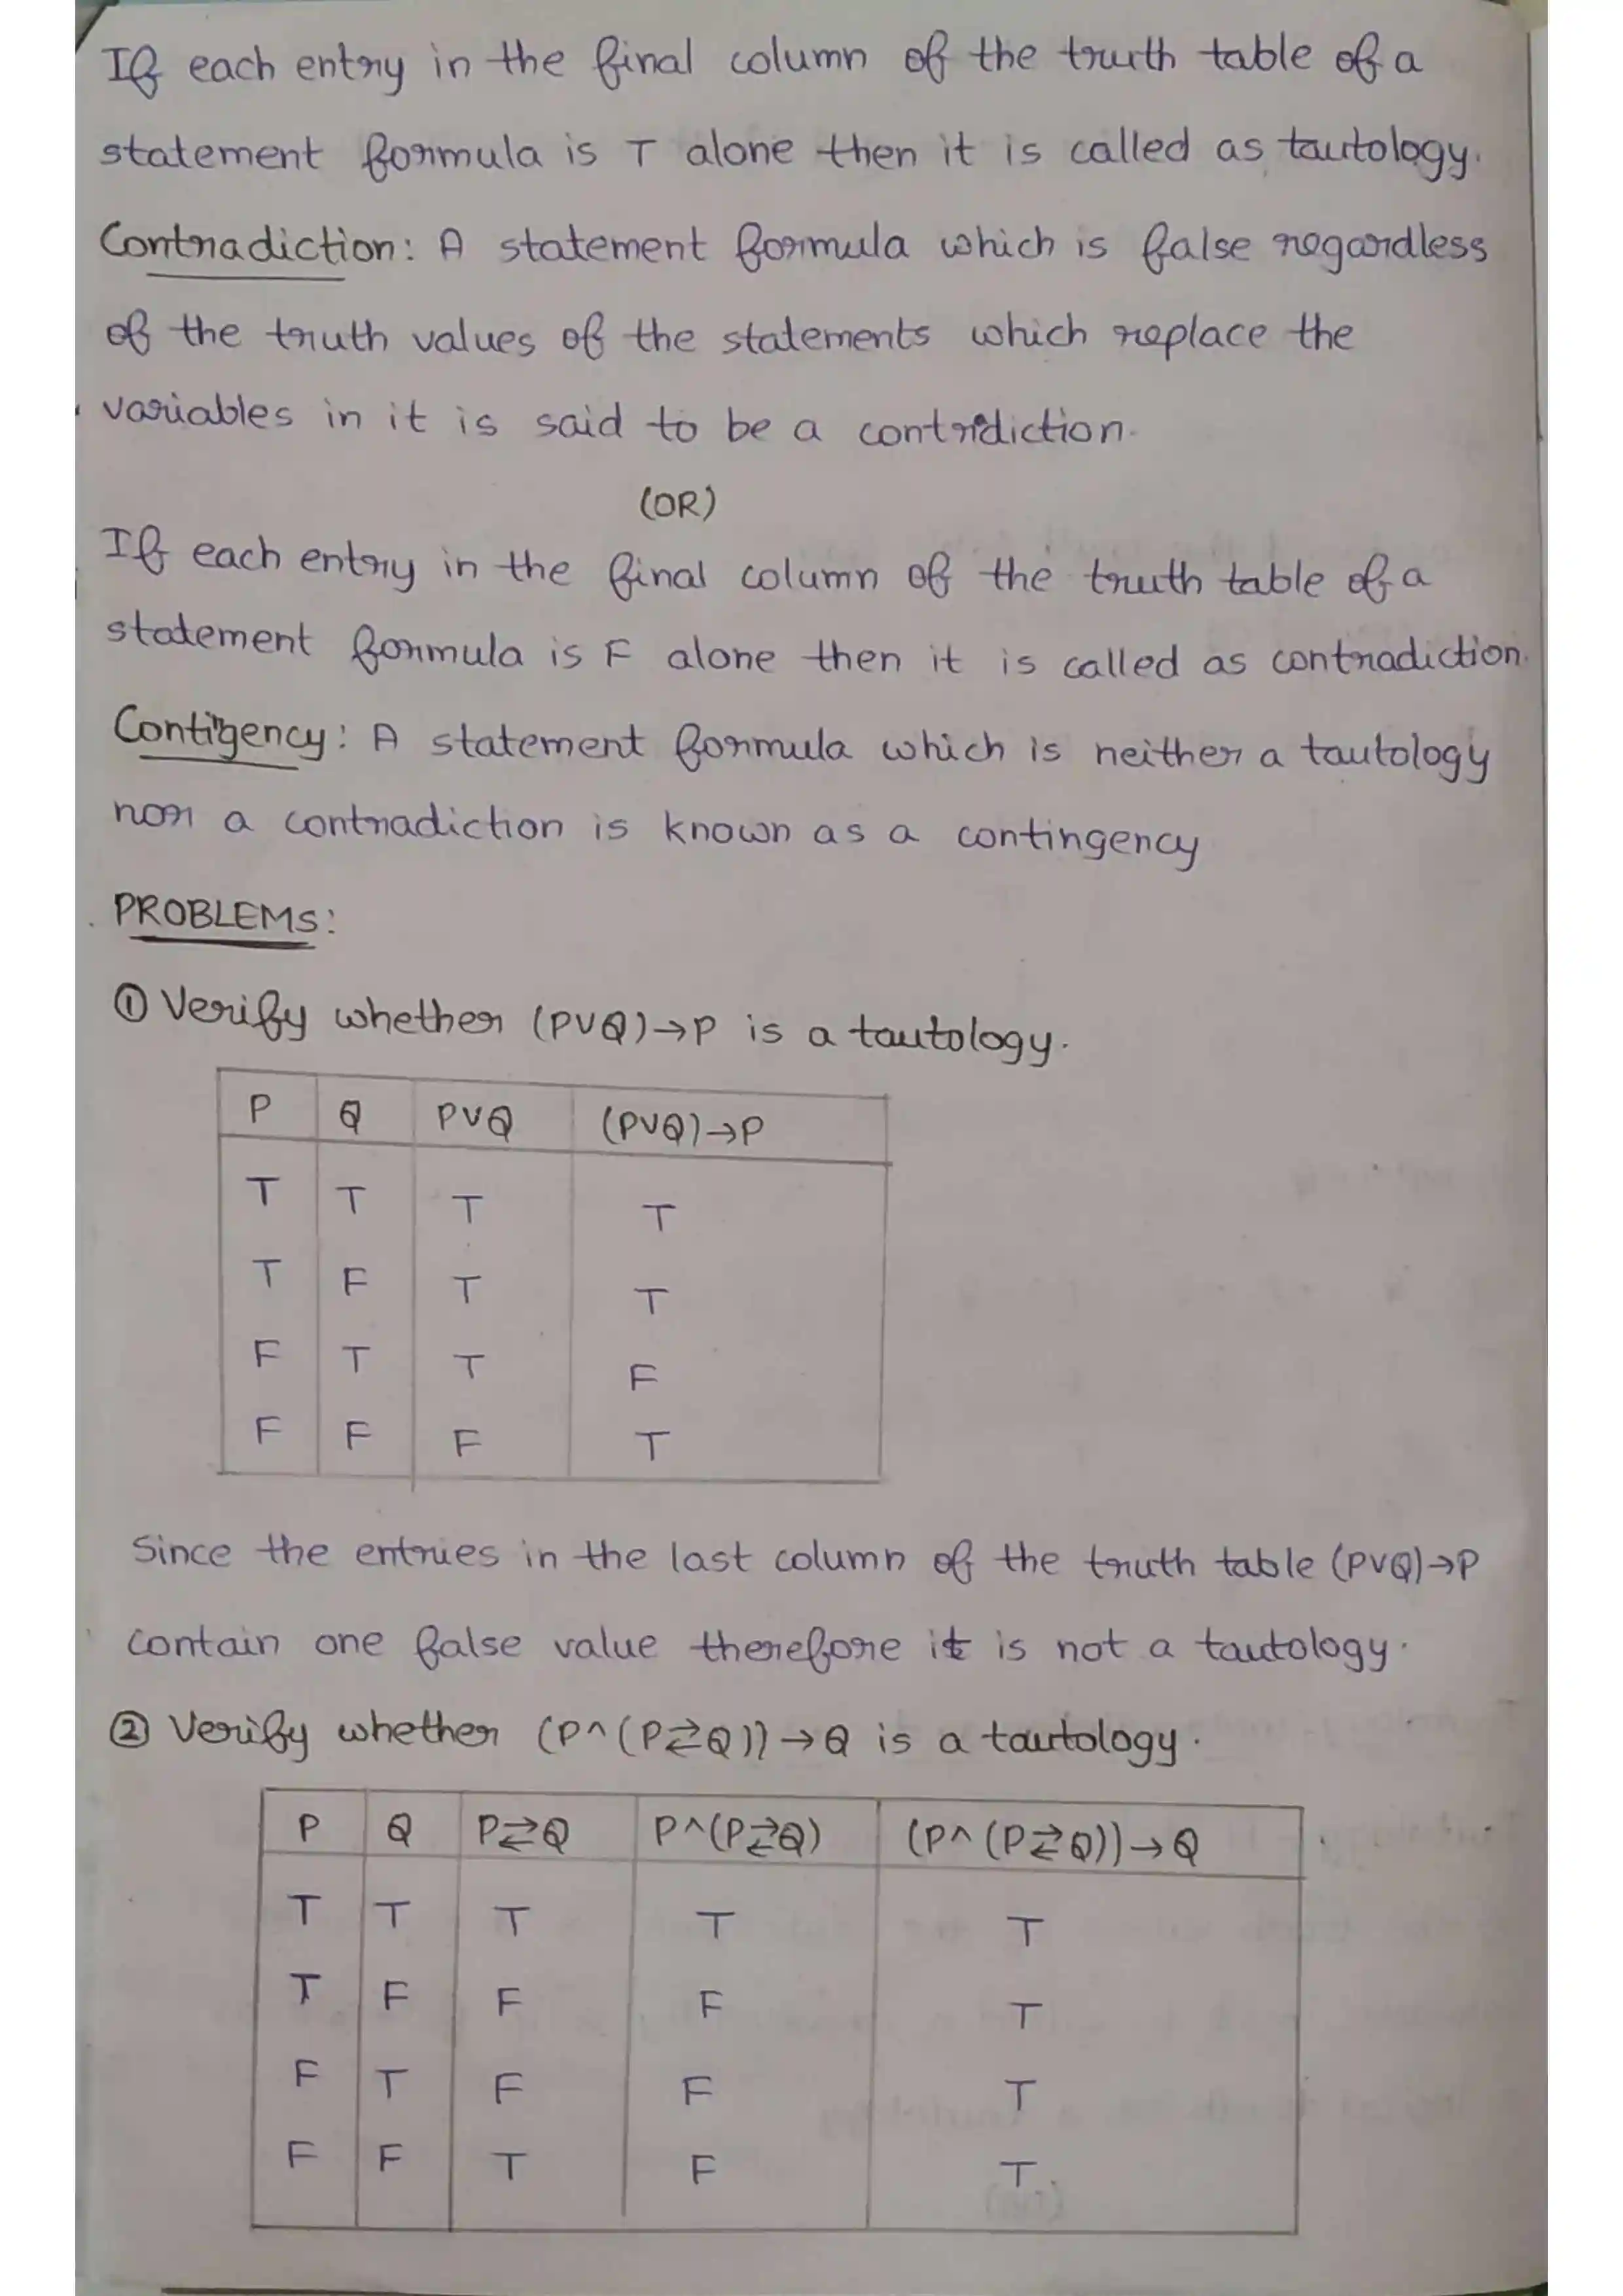 If each entry in the final column of the truth table of a
statement formula is T alone then it is called as tautology.
Contradiction: A statement formula which is false regardless
of the truth values of the statements which replace the
variables in it is said to be a contridiction.
(OR)
If each entry in the final column of the truth table of a
statement formula is F alone then it is called as contradiction.
Contingency: A statement formula which is neither a tautology
nor a contradiction is known as a contingency
PROBLEMS:
① Verify whether (P∨Q)→P is a tautology.
P Q P∨Q (P∨Q)→P
T T T T
T F T T
F T T F
F F F T
Since the entries in the last column of the truth table (P∨Q)→P
contain one false value therefore it is not a tautology.
② Verify whether (P∧(P⇄Q))→Q is a tautology.
P Q P⇄Q P∧(P⇄Q) (P∧(P⇄Q))→Q
T T T T T
T F F F T
F T F F T
F F T F T